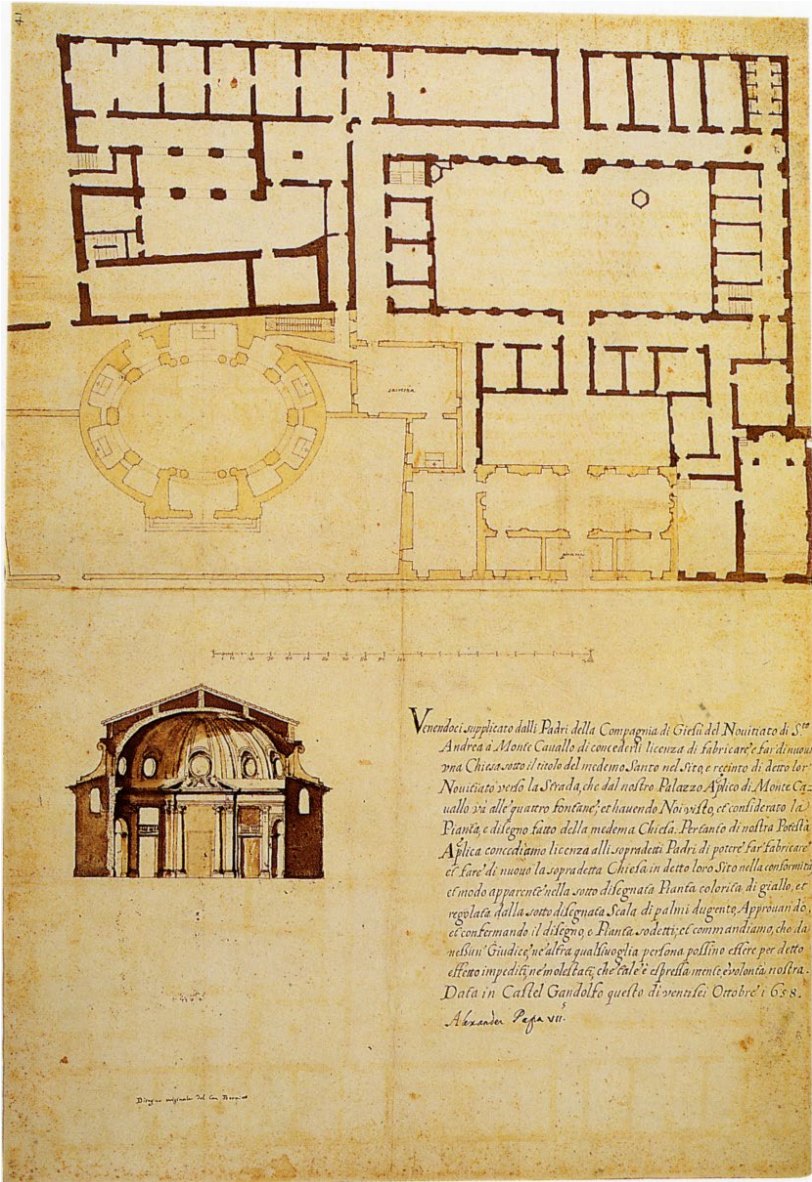 41
Venendoci supplicato dalli Padri della Compagnia di Giesù del Novitiato di S.to
Andrea à Monte Cauallo di concederli licenza di fabricare, e far di nuouo
vna Chiesa sotto il titolo del medemo Santo nel Sito, e recinto di detto lor
Nouitiato verso la Strada, che dal nostro Palazzo Aplico di Monte Ca-
uallo và alle quattro fontane; et hauendo Noi visto, et considerato la
Pianta, e disegno fatto della medema Chiesa. Pertanto di nostra Potestà
Aplica concediamo licenza alli sopradetti Padri di potere far fabricare
et fare di nuouo la sopradetta Chiesa in detto loro Sito nella conformità
et modo apparente nella sotto disegnata Pianta colorita di giallo, et
regolata dalla sotto disegnata Scala di palmi dugento, Approuando,
et confermando il disegno, e Pianta sodetti; et commandiamo, che da
nessun Giudice, ne altra qualsiuoglia persona possino essere per detto
effetto impediti, ne molestati, che tale è espressa mente, è volontà nostra.
Data in Castel Gandolfo questo di ventisei Ottobre 1658.
Alexander Papa VII.s
Disegno originale del Cav. Bernino